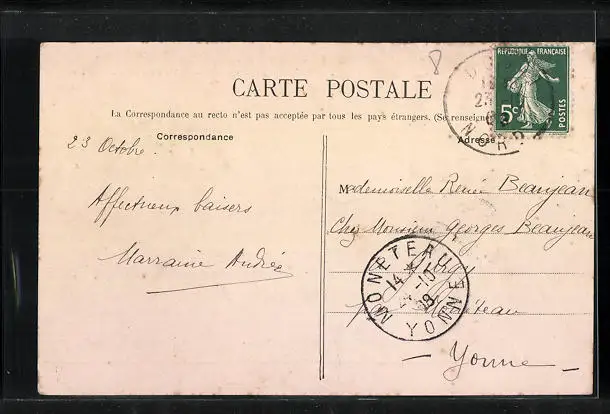 CARTE POSTALE
La Correspondance au recto n'est pas acceptée par tous les pays étrangers. (Se renseigner
Correspondance
Adresse
RÉPUBLIQUE FRANÇAISE
5c
POSTES
23
NORD
23 Octobre.
Affectueux baisers
Marraine Andrée
Mademoiselle Renée Beaujean
Chez Monsieur Georges Beaujean
par Monéteau
— Yonne —
MONETEAU
14
YONNE